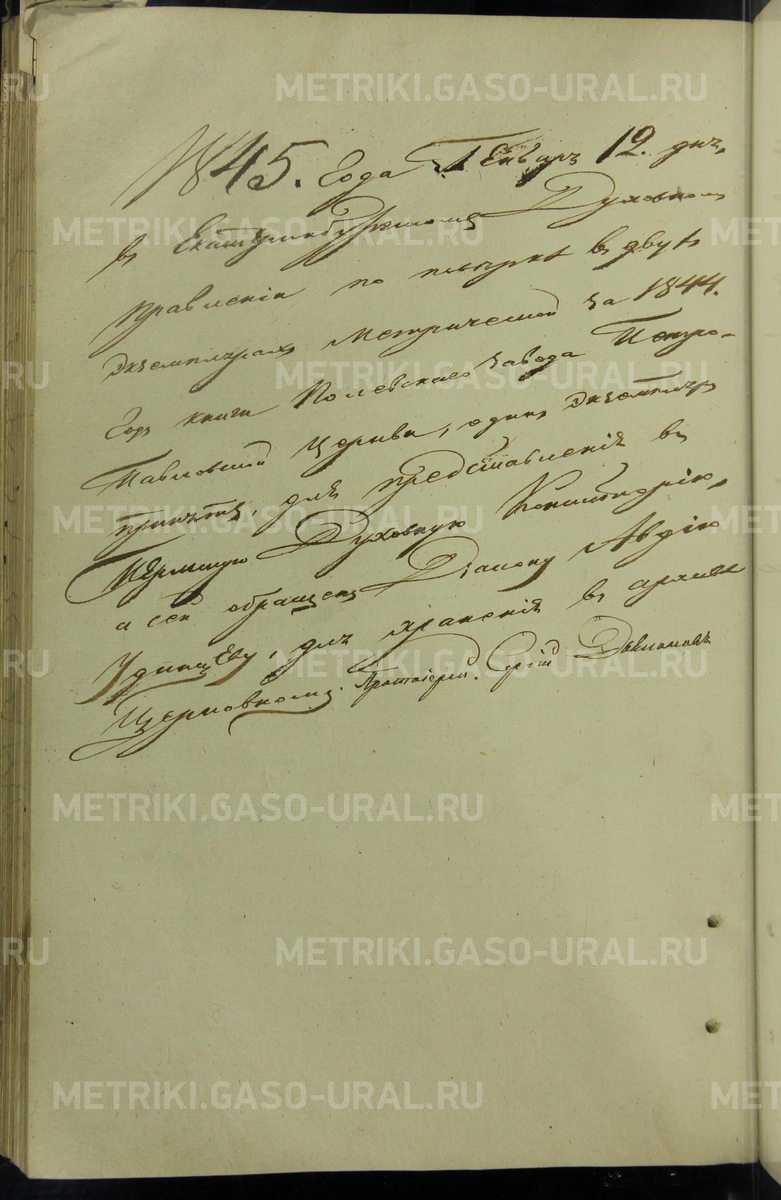 1845. года Генваря 12. дня,
въ Екатеринбургскомъ Духовномъ
Правленіи по повѣркѣ въ двухъ
экземплярахъ Метрической за 1844.
годъ книги Полевскаго завода Петро-
Павловской Церкви, одинъ экземпляръ
принятъ, для представленія въ
Пермскую Духовную Консисторію,
а сей обращенъ Діакону Авдію
Удинцеву, для храненія въ архивѣ
Церковномъ. Протоіерей Сергій
METRIKI.GASO-URAL.RU